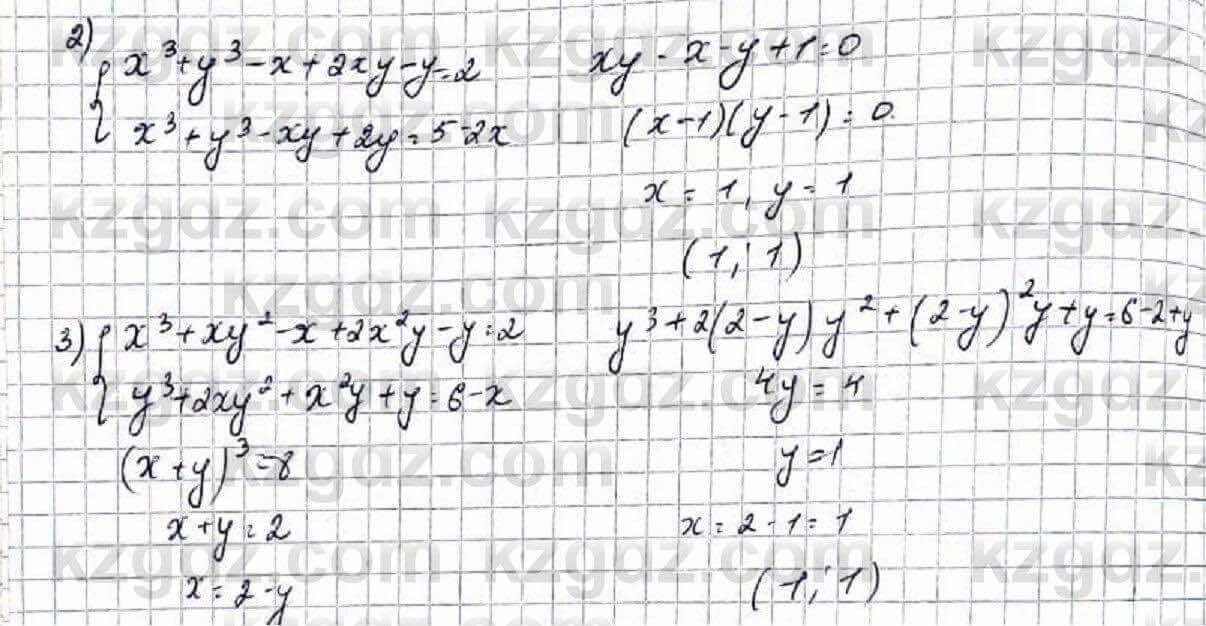 2)
x³+y³-x+2xy-y=2
x³+y³-xy+2y=5-2x
xy-x-y+1=0
(x-1)(y-1)=0.
x=1, y=1
(1; 1)
3)
x³+xy²-x+2x²y-y=2
y³+2xy²+x²y+y=6-x
(x+y)³=8
x+y=2
x=2-y
y³+2(2-y)y²+(2-y)²y+y=6-2+y
4y=4
y=1
x=2-1=1
(1; 1)
kzgdz.com